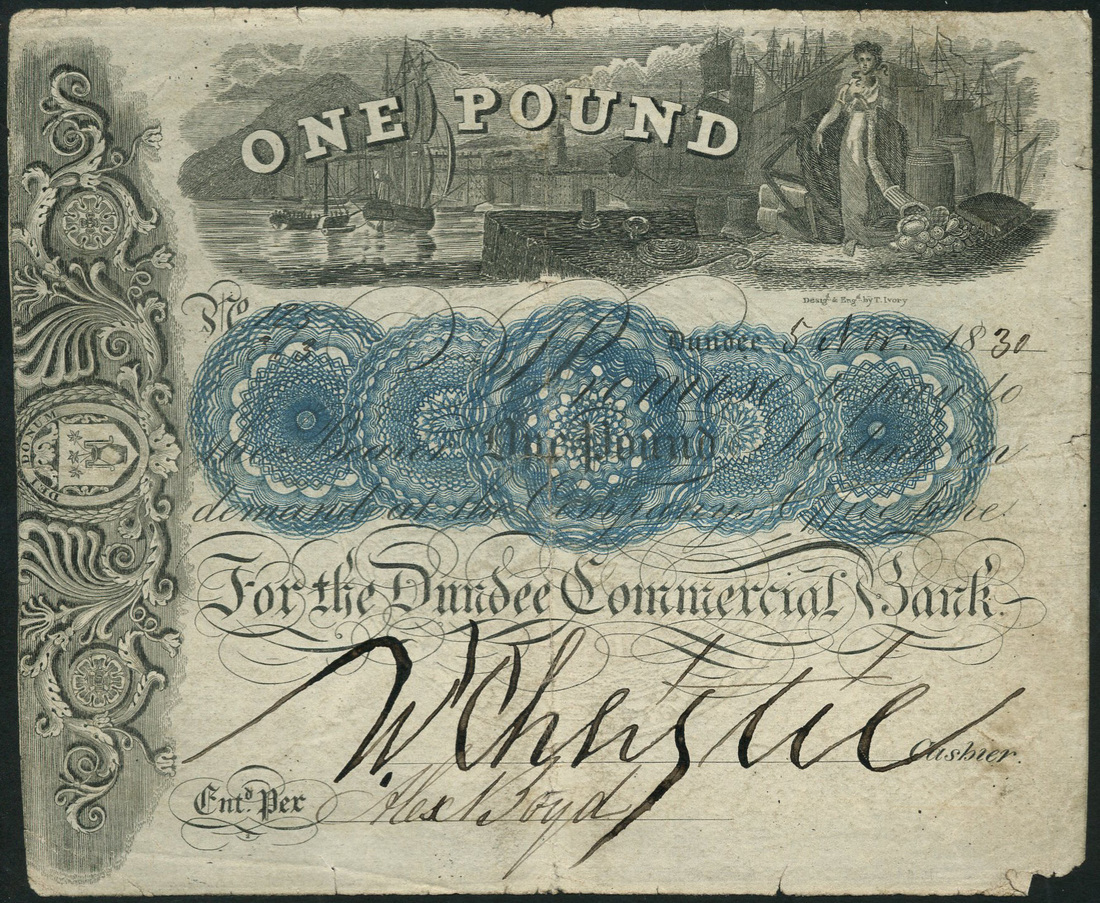 ONE POUND
Desigd. & Engd. by T. Ivory
No
Dundee 5 Novr. 1830
Promise to pay to
the Bearer One Pound Sterling on
demand at the Company's Office here
For the Dundee Commercial Bank
W. Christie Cashier.
Entd. Per Alex Boyd
DEI DONUM